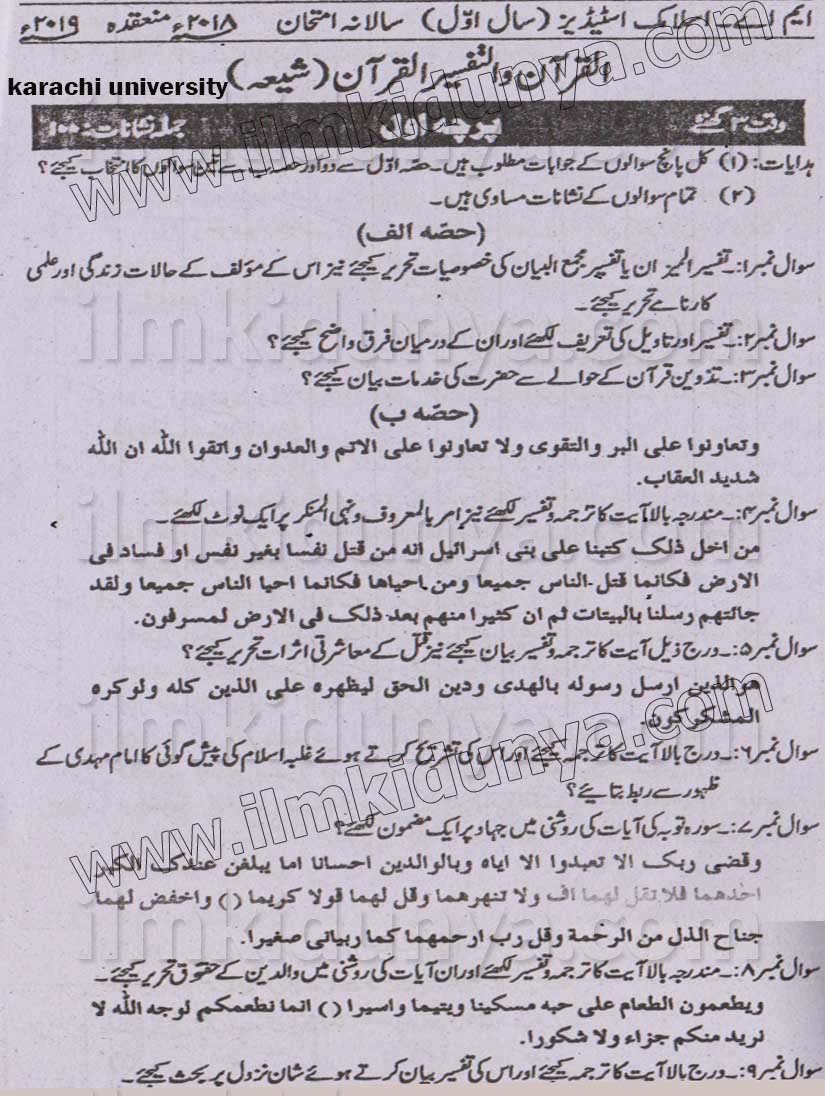 ایم اے۔ اسلامک اسٹیڈیز (سال اوّل) سالانہ امتحان ۲۰۱۸ء منعقدہ ۲۰۱۹ء
القرآن والتفسیر القرآن (شیعہ)
karachi university
وقت ۳ گھنٹے پرچہ اول جملہ نشانات: ۱۰۰
ہدایات: (۱) کل پانچ سوالوں کے جوابات مطلوب ہیں۔ حصّہ اوّل سے دو اور حصہ ب سے تین سوالوں کا انتخاب کیجئے؟
(۲) تمام سوالوں کے نشانات مساوی ہیں۔
(حصّہ الف)
سوال نمبر۱:۔ تفسیر المیزان یا تفسیر مجمع البیان کی خصوصیات تحریر کیجئے نیز اس کے مؤلف کے حالات زندگی اور علمی
کارنامے تحریر کیجئے۔
سوال نمبر۲:۔ تفسیر اور تاویل کی تعریف لکھئے اور ان کے درمیان فرق واضح کیجئے؟
سوال نمبر۳:۔ تدوین قرآن کے حوالے سے حضرت کی خدمات بیان کیجئے؟
(حصّہ ب)
وتعاونوا علی البر والتقوی ولا تعاونوا علی الاثم والعدوان واتقوا اللہ ان اللہ
شدید العقاب.
سوال نمبر۴:۔ مندرجہ بالا آیت کا ترجمہ و تفسیر لکھئے نیز امر بالمعروف ونہی المنکر پر ایک نوٹ لکھئے۔
من اخل ذلک کتبنا علی بنی اسرائیل انہ من قتل نفسا بغیر نفس او فساد فی
الارض فکانما قتل الناس جمیعا ومن احیاھا فکانما احیا الناس جمیعا ولقد
جائتھم رسلنا بالبینات ثم ان کثیرا منھم بعد ذلک فی الارض لمسرفون.
سوال نمبر۵:۔ درج ذیل آیت کا ترجمہ و تفسیر بیان کیجئے نیز قتل کے معاشرتی اثرات تحریر کیجئے؟
ھوالذین ارسل رسولہ بالھدی ودین الحق لیظھرہ علی الذین کلہ ولوکرہ
المشکرکون.
سوال نمبر۶:۔ درج بالا آیت کا ترجمہ کیجئے اور اس کی تشریح کرتے ہوئے غلبہ اسلام کی پیش گوئی کا امام مہدی کے
ظہور سے ربط بتائیے؟
سوال نمبر۷:۔ سورہ توبہ کی آیات کی روشنی میں جہاد پر ایک مضمون لکھئے؟
وقضی ربک الا تعبدوا الا ایاہ وبالوالدین احسانا اما یبلغن عندک الکبر
احدھما فلا تقل لھما اف ولا تنھرھما وقل لھما قولا کریما () واخفض لھما
جناح الذل من الرحمة وقل رب ارحمھما کما ربیانی صغیرا.
سوال نمبر۸:۔ مندرجہ بالا آیت کا ترجمہ و تفسیر لکھئے اور ان آیات کی روشنی میں والدین کے حقوق تحریر کیجئے۔
ویطعمون الطعام علی حبہ مسکینا ویتیما واسیرا () انما نطعمکم لوجہ اللہ لا
نرید منکم جزاء ولا شکورا.
سوال نمبر۹:۔ درج بالا آیت کا ترجمہ کیجئے اور اس کی تفسیر بیان کرتے ہوئے شان نزول پر بحث کیجئے۔
www.ilmkidunya.com
ilmkidunya.com
ilmkidunya.com
ilmkidunya.com
www.ilmkidunya.com
ilmkidunya.com